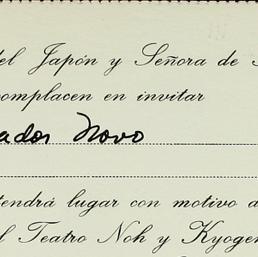 del Japón y Señora de
complacen en invitar
ador Novo
tendrá lugar con motivo d
l Teatro Noh y Kyogen